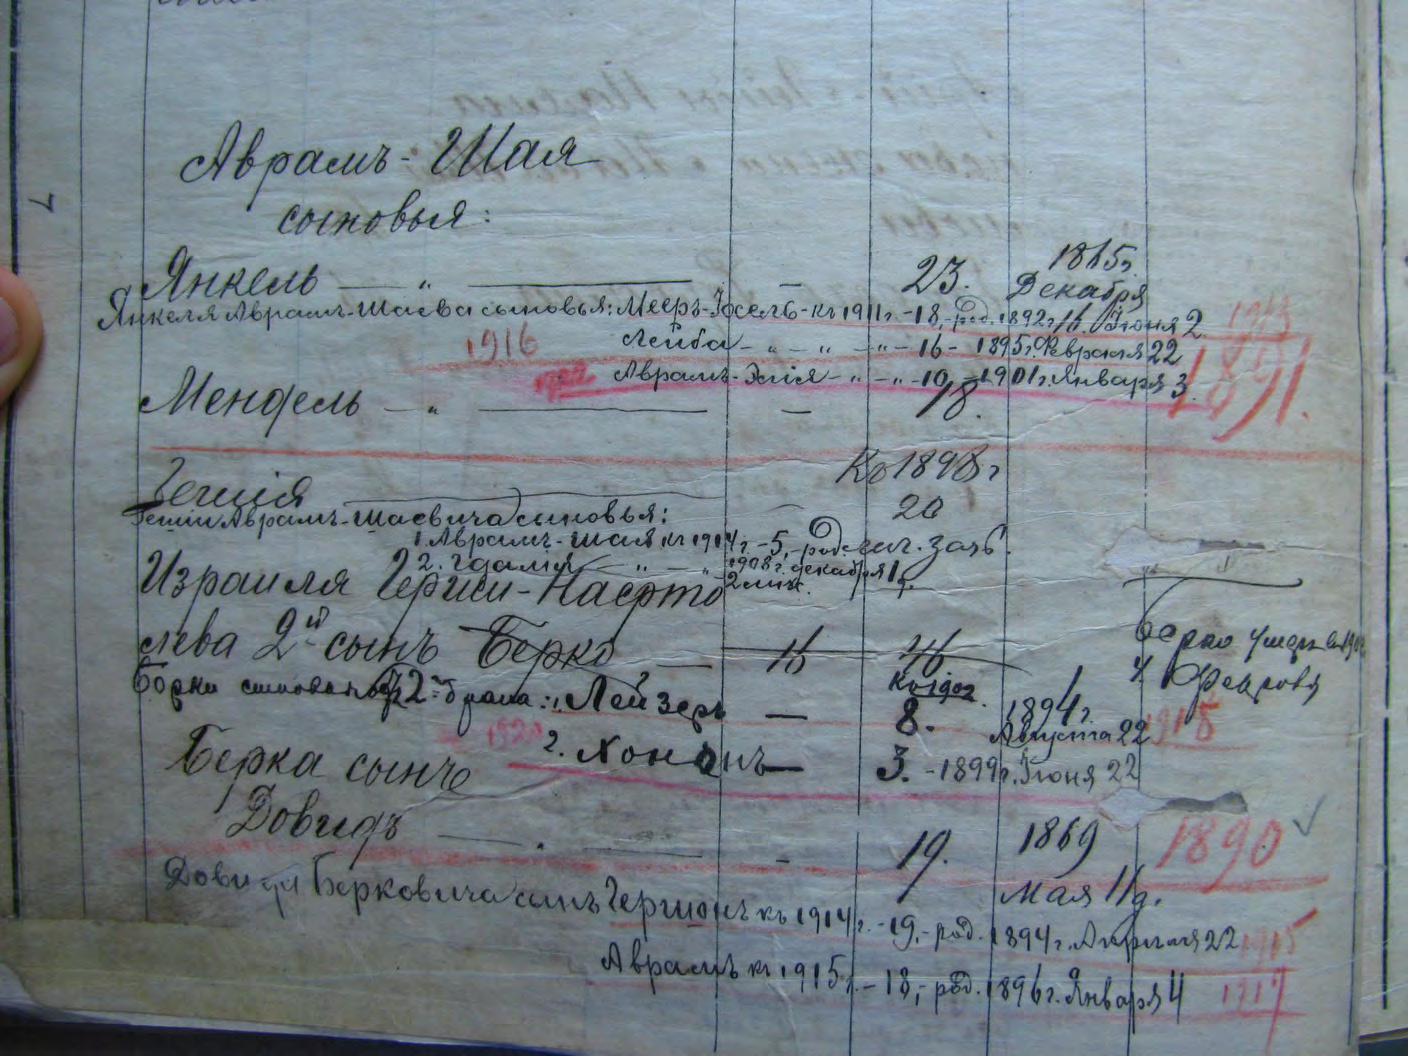 7
Аврамъ-Шая
сыновья:
Янкель — " — — 23. 1865г. Декабря
Янкеля Аврамъ-Шаева сыновья: Мееръ-Іосель-къ 1911г.-18,-род. 1892г. 16 Іюня 2. 1913
1916 Лейба - " - " - " - 16 - 1895г. Февраля 22
Аврамъ-Элія - " - " - 10 - 1901г. Января 3. 1891.
Мендель — " — — 18.
Къ 1898г
Гешія — — 20
Гешіи Аврамъ-Шаевича сыновья:
1. Аврамъ-Шая къ 1914г. - 5, - род.
2. Гдалія - " - " 1908г. декабря 1д.
Израиля Гершн-Наерто 2 лит.
лева 2й сынъ Берко — 16 46 Берко умеръ въ
4 Февраля
Берки сыновья 2го брака: 1. Лейзеръ — къ 1902 8. 1894г. Августа 22 1915
1920 2. Хононъ — 3. - 1899г. Іюня 22
Берка сынъ
Довидъ — " — — 19. 1869 Мая 11д. 1890
Довида Берковича сынъ Гершонъ къ 1914г. - 19, - род. 1894г. Апрѣля 22 1915
Аврамъ къ 1915г. - 18, - род. 1896г. Января 4 1917